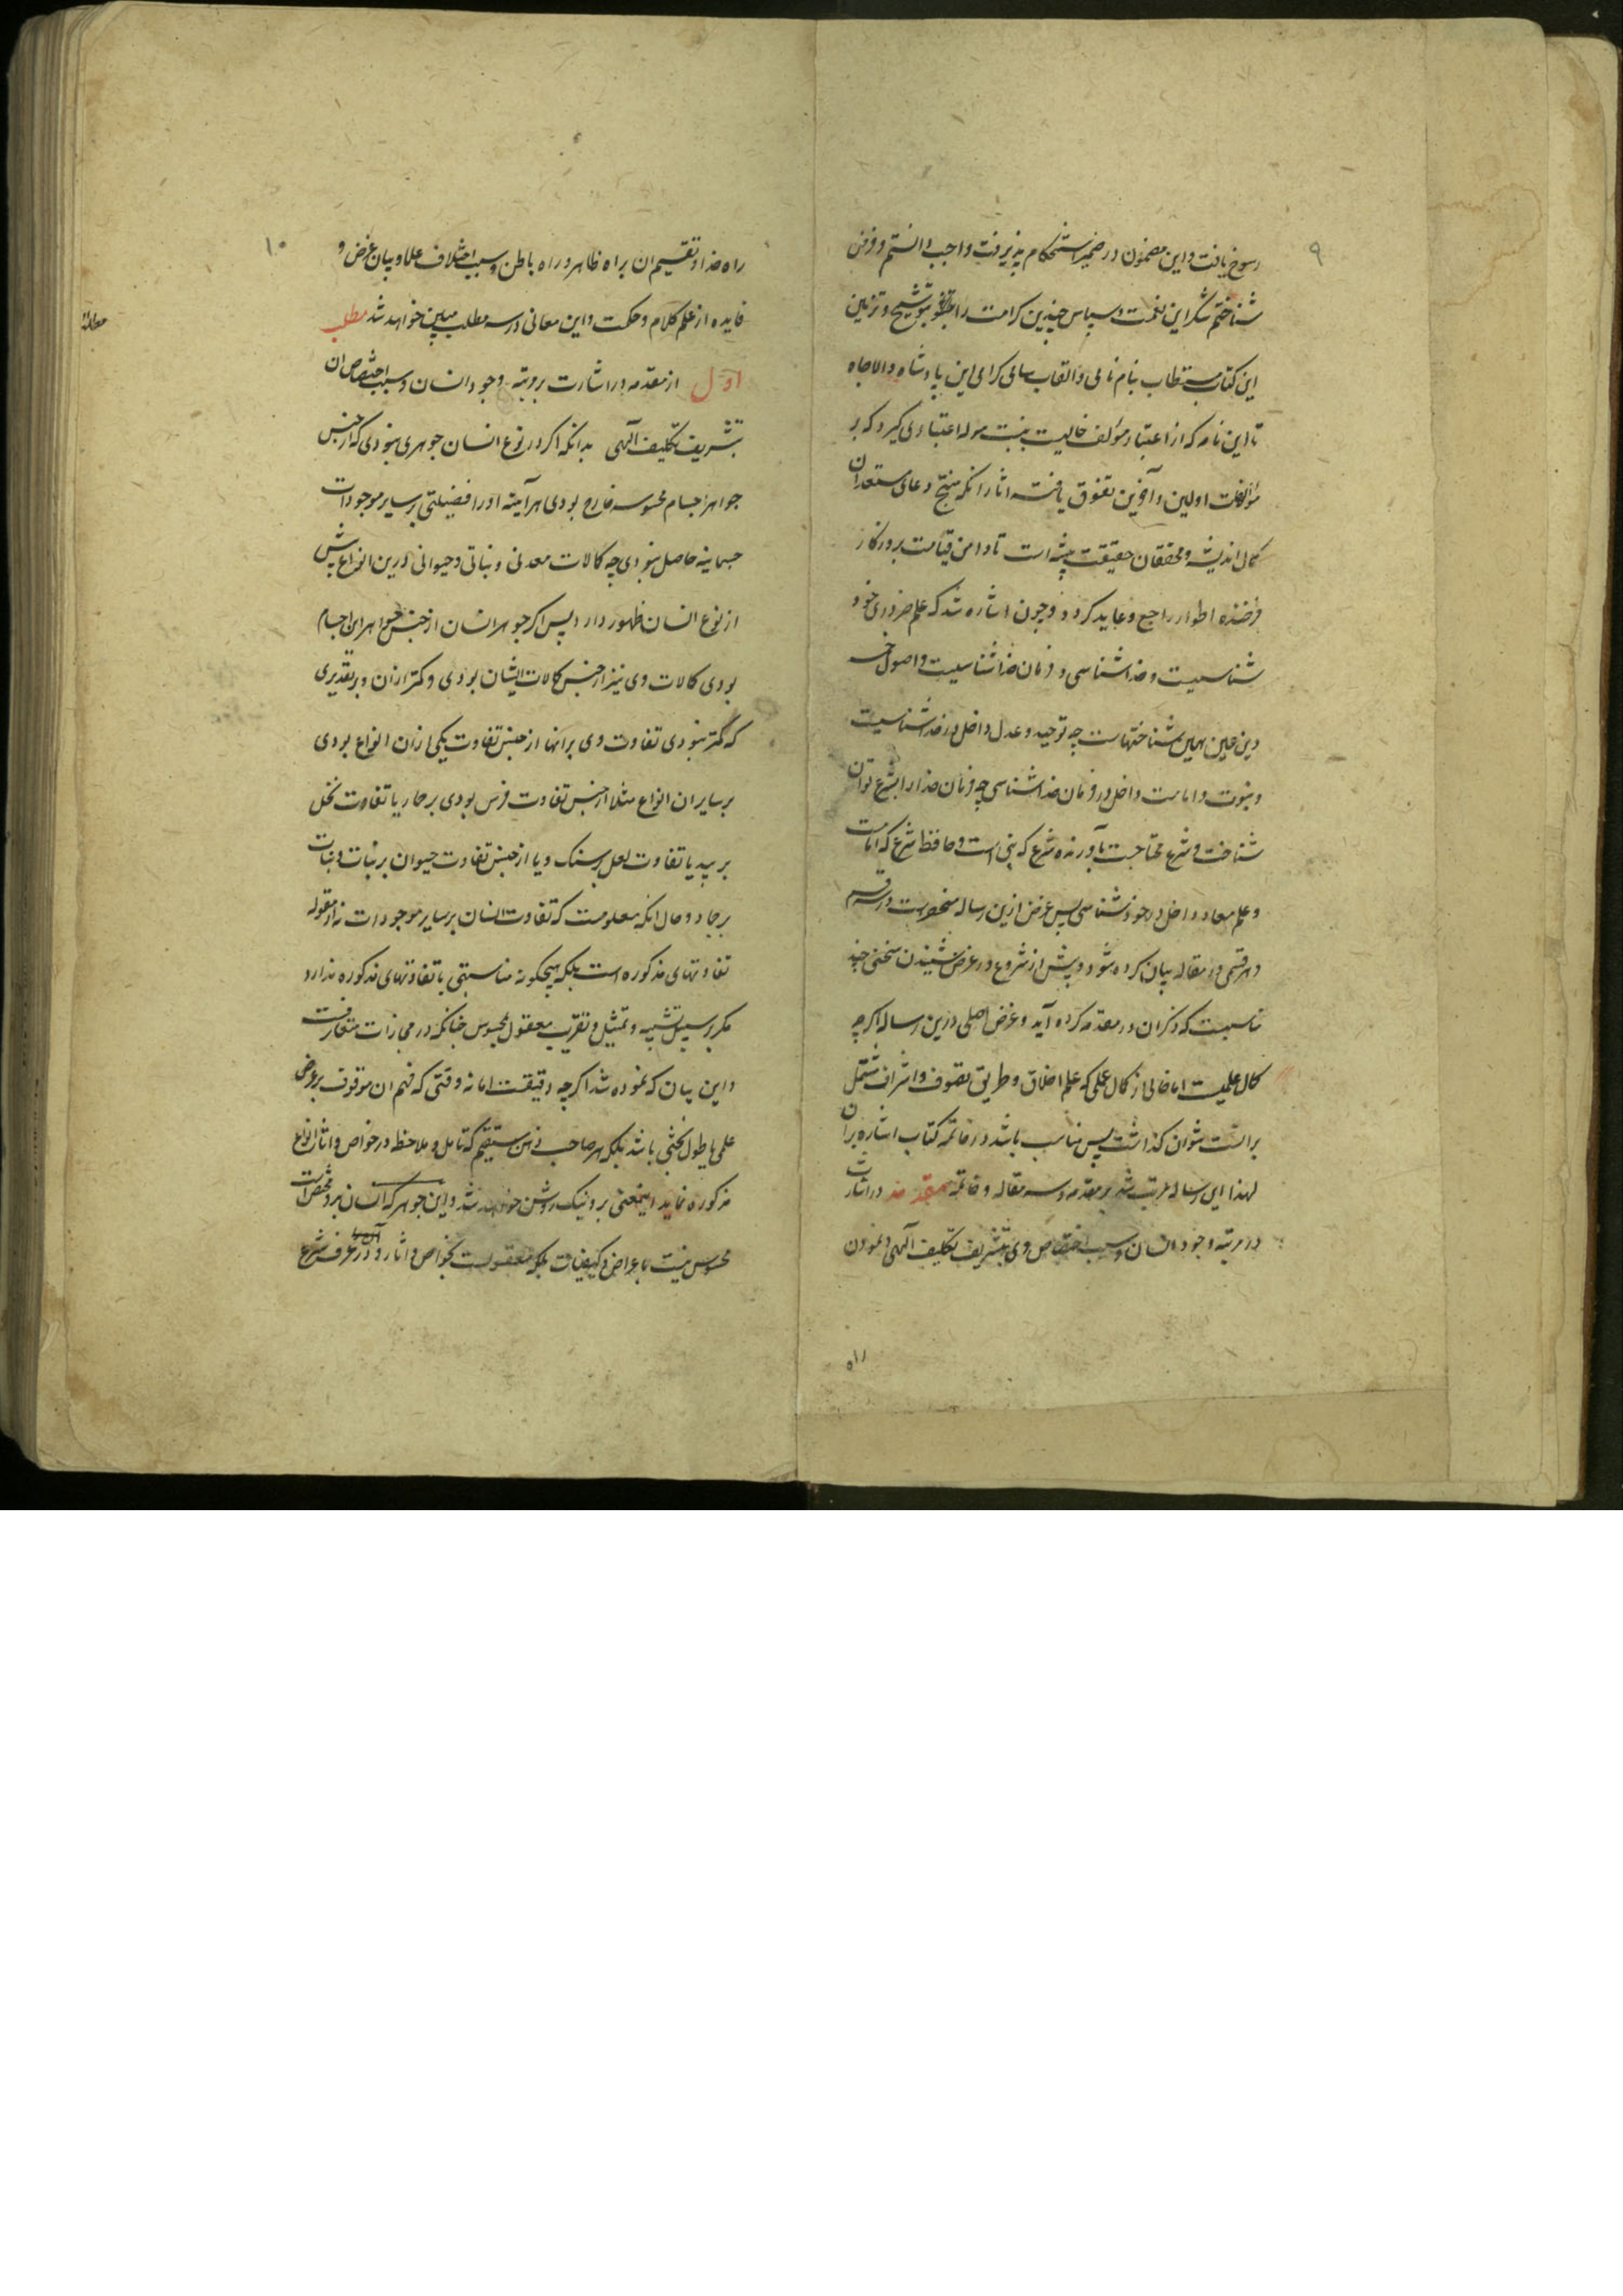 ۹
رسوخ یافت و این مضمون در ضمیر استحکام پذیرفت واجب دانستم و فرض
شناختم شکر این نعمت و سپاس چنین کرامت را بتوشیح و تزیین
این کتاب مستطاب بنام نامی و القاب سامی گرامی این پادشاه والاجاه
تا این نامه که از اعتبار مؤلف خالیست بنسبت مولد اعتباری گیرد که بر
مؤلفات اولین و آخرین تفوق یافته اثار انکه منتج دعای مستعدان
کمال اندیشه و محققان حقیقت پیشه است تا دامن قیامت بروزکار
فرخنده اطوار راجع و عاید کردد و چون اشاره شد که علم ضروری خود
شناسیست و خداشناسی و فرمان خداشناسیست و اصول خمسه
دین مبین همین شناختهاست چه توحید و عدل داخل در خداشناسیست
و نبوت و امامت داخل در فرمان خداشناسی چه فرمان خدا را بشرع توان
شناخت و شرع محتاجست بآورنده شرع که نبی است و حافظ شرع که امامست
و علم معاد داخل در خودشناسی پس غرض ازین رساله منحصرست در سه قسم
و هر قسمی در مقاله بیان کرده شود و پیش از شروع در غرض شنیدن سخنی چند
مناسبت که ذکران در مقدمه کرده آید و غرض اصلی درین رساله اگر چه
کمال علمیست اما خالی از کمال عملی که علم اخلاق و طریق تصوف و اشراف مشتمل
برانست نتوان گذاشت پس مناسب باشد در خاتمه کتاب اشاره بران
لهذا این رساله مرتب شد بر مقدمه و سه مقاله و خاتمه مقدمه در اشارت
در مرتبه وجود انسان و سبب اختصاص وی بتشریف تکلیف آلهی و نمودن
راه
۱۰
راه خدا و تقسیم ان براه ظاهر و راه باطن و سبب اختلاف علما و بیان غرض و
فایده از علم کلام و حکمت و این معانی در سه مطلب مبین خواهد شد مطلب
اول از مقدمه در اشارت برتبه وجود انسان و سبب اختصاص ان
بتشریف تکلیف آلهی بدانکه اکر در نوع انسان جوهری نبودی که از جنس
جواهر اجسام محسوسه خارج بودی هر آینه او را فضیلتی بر سایر موجودات
جسمانیه حاصل نبودی چه کمالات معدنی و نباتی و حیوانی درین انواع بیش
از نوع انسان ظهور دارد پس اکر جوهر انسان از جنس جواهر این اجسام
بودی کمالات وی نیز از جنس کمالات ایشان بودی و کمتر ازان و بر تقدیری
که کمتر نبودی تفاوت وی برانها از جنس تفاوت یکی ازان انواع بودی
بر سایر ان انواع مثلا از جنس تفاوت فرس بودی بر حمار یا تفاوت نخل
بر بید یا تفاوت لعل بر سنک و یا از جنس تفاوت حیوان بر نبات و نبات
بر جماد و حال انکه معلومست که تفاوت انسان بر سایر موجودات نه از مقوله
تفاوتهای مذکوره است بلکه هیچکونه مناسبتی با تفاوتهای مذکوره ندارد
مکر بر سبیل تشبیه و تمثیل و تقریب معقول بمحسوس چنانکه در مجازات متعارفست
و این بیان که نموده شد اکر چه دقیقست اما نه دقتی که فهم ان موقوف بر عرض
علمی یا طول بحثی باشد بلکه هر صاحب ذهن مستقیم که تامل و ملاحظه در خواص و اثار انواع
مذکوره نماید اینمعنی بر و نیک روشن خواهد شد و این جوهر که انسان بدو مختص است
محسوس نیست باعراض و کیفیات بلکه معقولست بخواص و اثار و در عرف شرع